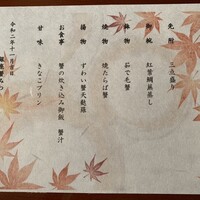 先附 三点盛り
御椀 紅葉鯛蕪蒸し
冷物 茹で毛蟹
焼物 焼たらば蟹
揚物 ずわい蟹天麩羅
お食事 蟹の炊き込み御飯 蟹汁
甘味 きなこプリン
令和二年十一月吉日